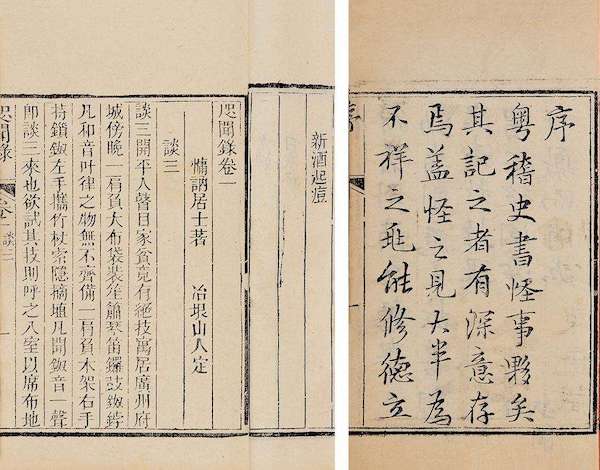 序
粵稽史書怪事夥矣
其記之者有深意存
焉盖怪之見大半為
不祥之兆能修德立
序
新酒起痘
咫聞錄卷一
慵訥居士著 冶垠山人定
談三
談三開平人瞽目家貧竟有絕技寓居廣州府
城傍晚一肩負大布袋裝笙簫琴笛鑼鼓鈸
凡和音叶律之物無不齊備一肩負木架右手
持鎖鈸左手攜竹杖索隱摘埴凡聞鈸音一聲
即談三來也欲試其技則呼之入室以席布地
咫聞錄 卷一 談三